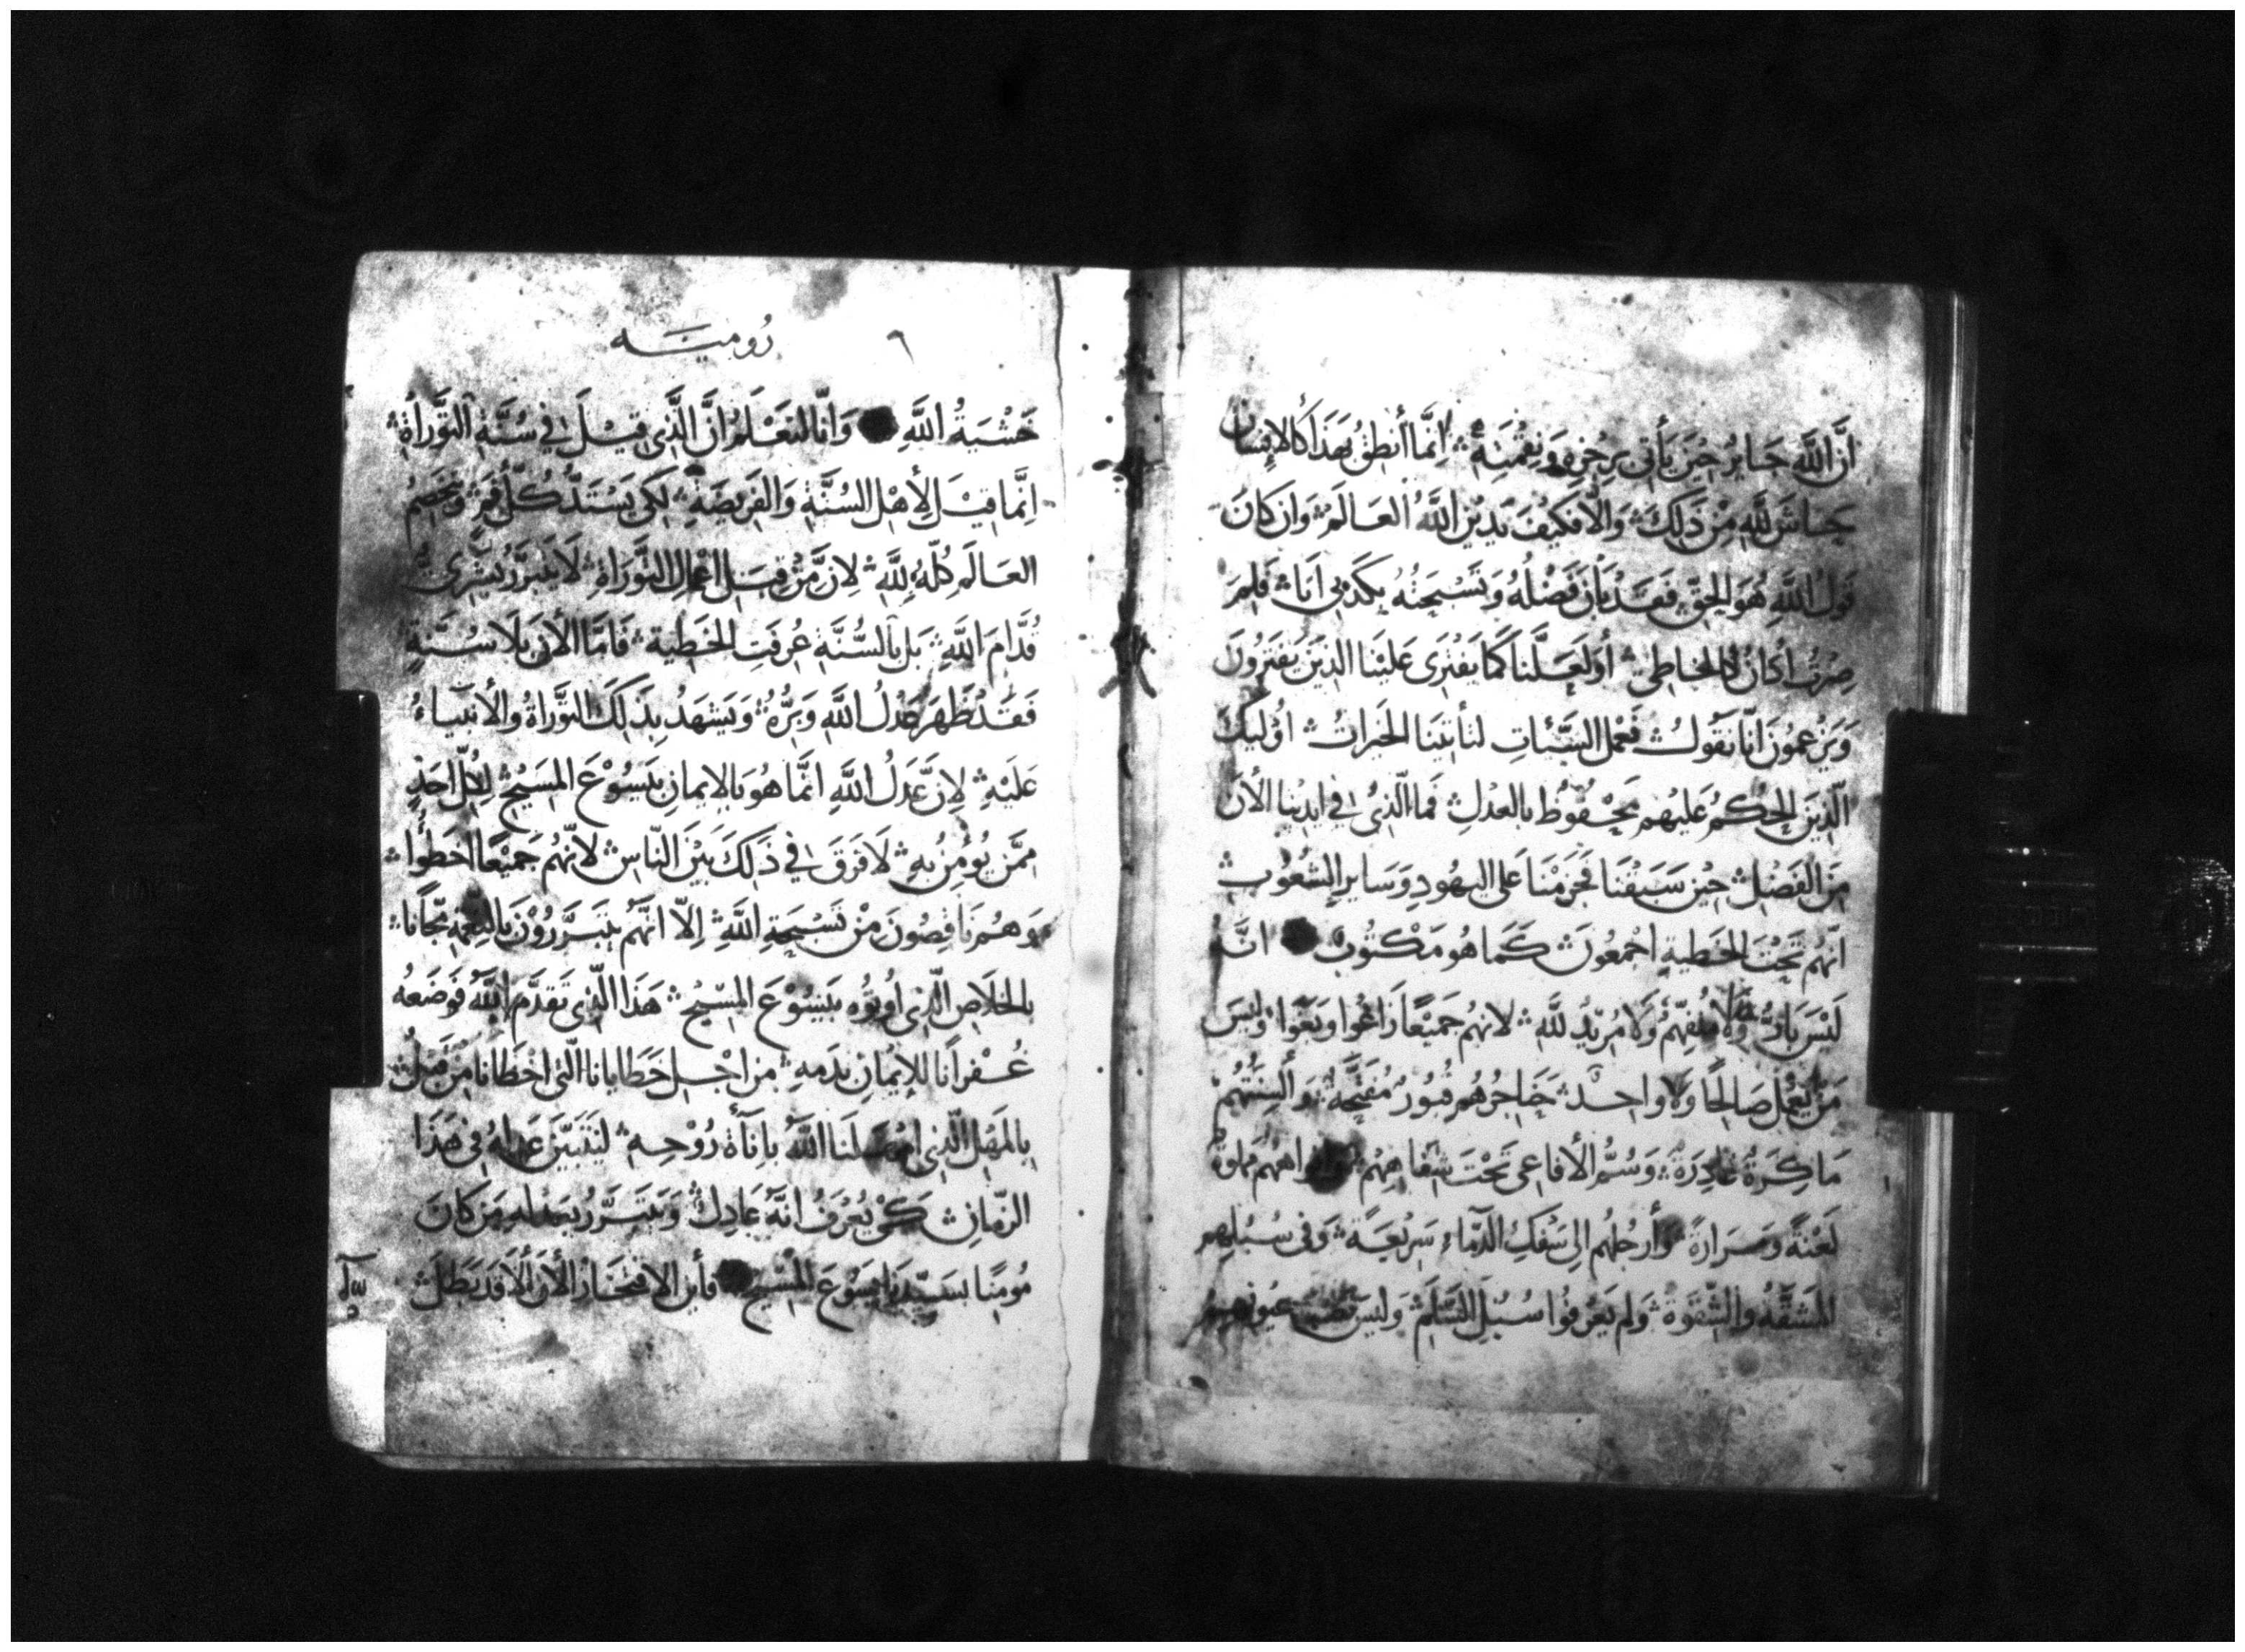 أنَّ اللَّه جَايرُ حِيْنَ يَأتي بِرِجْزِهِ وَنِقْمَتِهِ ۞ اِنَّما أنطِقُ بهَذَا كَالاِنِسَان
حَاشَ للَّهِ مِنْ ذَلِكَ ۞ وَالَّا فكَيْفَ يَدِيْنِ اللَّهُ العَالَمُ ۞ وَان كَانَ
قَولُ اللَّهِ هُوَ الحَقّ فَقَدْ بَانَ فَضْلُهُ وَتَسْبِحَتُهُ بِكَذِبي اَنَا ۞ فَلِمَ
صِرْتُ أُدَانُ كالخاطِي ۞ أوَ لعَلَّنا كَمَا يَفْتَرِى عَليْنَا الذِيْنَ يَفتَرُونَ
وَيَزعمُوَن انّا نَقُولُ ۞ نَعْمل السَيَّئاتِ لتأتِيَنا الخَيرَاتُ ۞ اوُليِكَ
الَّذِيَن الحُكمُ عَليْهم مَحْفُوظُ بالعَدْلِ ۞ فما الَّذِىْ فى ايدِيْنا الأنَ
مِنَ الفَضْل ۞ حِيْن سَبَقْنَا فَجَزَمْنا عَلى اليهُودِ وَسَاير الشعُوُب ۞
انّهُم تَحْتَ الخَطيةِ اجْمَعُونَ ۞ كَمَا هُو مَكْتُوب انَّهُ
لَيْسَ بَارُّ وَلَا مُتفهِّمُ وَلَا مُريْدُ للَّهِ ۞ لانهُم جَميْعًا زَاغُوا وَبَغَوا ۞ وَليْسَ
مَنْ يَعْمَل صَالِحًا وَلَا وَاحِد ۞ حَنَاجرُهُم قبُورُ مُفتَحَّةُ ۞ وَألسِنَتُهُمْ
مَاكِرَةُ غَادِرَةُ ۞ وَسُمُّ الأفاعى تَحْتَ شِفَاهِهُمْ ۞ وافواههم مملوَةُ
لَعْنَةً وَمَرَارَةً ۞ وَأرجُلهُم اِلى سَفكِ الدِّمَاءِ سَرِيْعَةُ ۞ وَفى سُبُلِهِم
المَشَقَّةُ والشِّقوَةُ ۞ وَلم يَعْرِفُوا سُبُلَ السَّلَم ۞ وَليسَ عيُونهِمُ
رُوميَّــه ٦
خَشْيَةُ اللَّهِ وَانَّا لنَعْلَمُ انَّ الَّذِى قِيْلَ فى سُنَّةِ التَّورَاةِ ۞
اِنَّما قيْلَ لِأهْل السُنَّةِ وَالفَرِيضَةِ ۞ لِكَى يَسْتَدَّ كلّ فَمٍ ۞ وَيَخصِمُ
العَالَم كُلّهُ لِلَّهِ ۞ لاِنَّ مِنْ قِبَل اعْمِال التَّورَاةِ ۞ لَا يَتبَرَّرُ بَشَرِىُّ
قُدَّامَ اللَّهِ ۞ بَل بالسُّنَّةِ عُرِفَتِ الخَطِيَة ۞ فَامَّا الأنَ بلَا سُنَّةٍ
فَقَدْ ظَهَرَ عَدْلُ اللَّهِ وَبِرُّهُ ۞ وَيَشهَدُ بِذَلِكَ التَّورَاةُ والأنبيَاءُ
عَلَيْهِ ۞ لاِنَّ عَدْلُ اللَّهِ انَّما هُو بَالايمَانِ بيَسُوْعَ المَسِيْحِ ۞ لِكُلّ احَدٍ
مِمَّن يُؤمِنُ بهِ ۞ لَا فَرَقَ فى ذَلِكَ بَيْنَ النَّاسِ ۞ لانّهُم جَميْعًا اخطَوُا ۞
وَهُم نَاقِصُونَ مِنْ تَسْبِحَةِ اللَّهِ ۞ اِلّا انَّهُم يَتبَرَّرُوْنَ بالنِعْمَةِ مَّجَانا ۞
بالخَلَاصِ الَّذِى اوتوُه بيَسُوْعَ المسِيْح ۞ هَذَا الَّذِى تَقدَّمَ اللَّهُ فَوَضَعَهُ
غُفْرانًا للِايْمَانِ بدَمهِ ۞ مِنْ اجْل خَطَايانا الَّتى اخْطَانا مِنْ قَبْلُ ۞
بِالمَهْلِ الَّذِى امْهَلَنا اللَّهُ بأِنَاةِ رُوْحِهِ ۞ ليَتبَيَّن عَدلهُ فِى هَذَا
الزَّمانِ ۞ كَىْ يُعْرَفُ انَّهُ عَادِلُ ۞ وَيَتبَرَّرُ بعَدلهِ مَن كَانَ
مُومِنًا بسَيّدِنا يَسُوْعَ المَسِيْح فأين الافتخَارُ الأنَ ألَا قَد بَطَلَ ۞